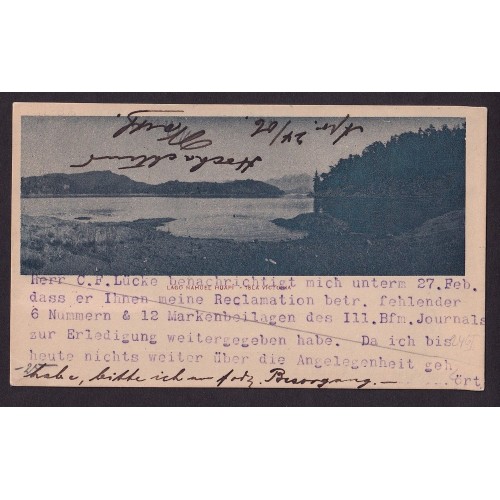 Apr. 24/06.
Hochachtend
LAGO NAHUEL HUAPI - ISLA VICTORIA
Herr C.F.Lücke benachrichtigt mich unterm 27.Feb.
dass er Ihnen meine Reclamation betr. fehlender
6 Nummern & 12 Markenbeilagen des Ill.Bfm.Journals
zur Erledigung weitergegeben habe. Da ich bis
heute nichts weiter über die Angelegenheit geh
...ört
habe, bitte ich um Besorgung.-